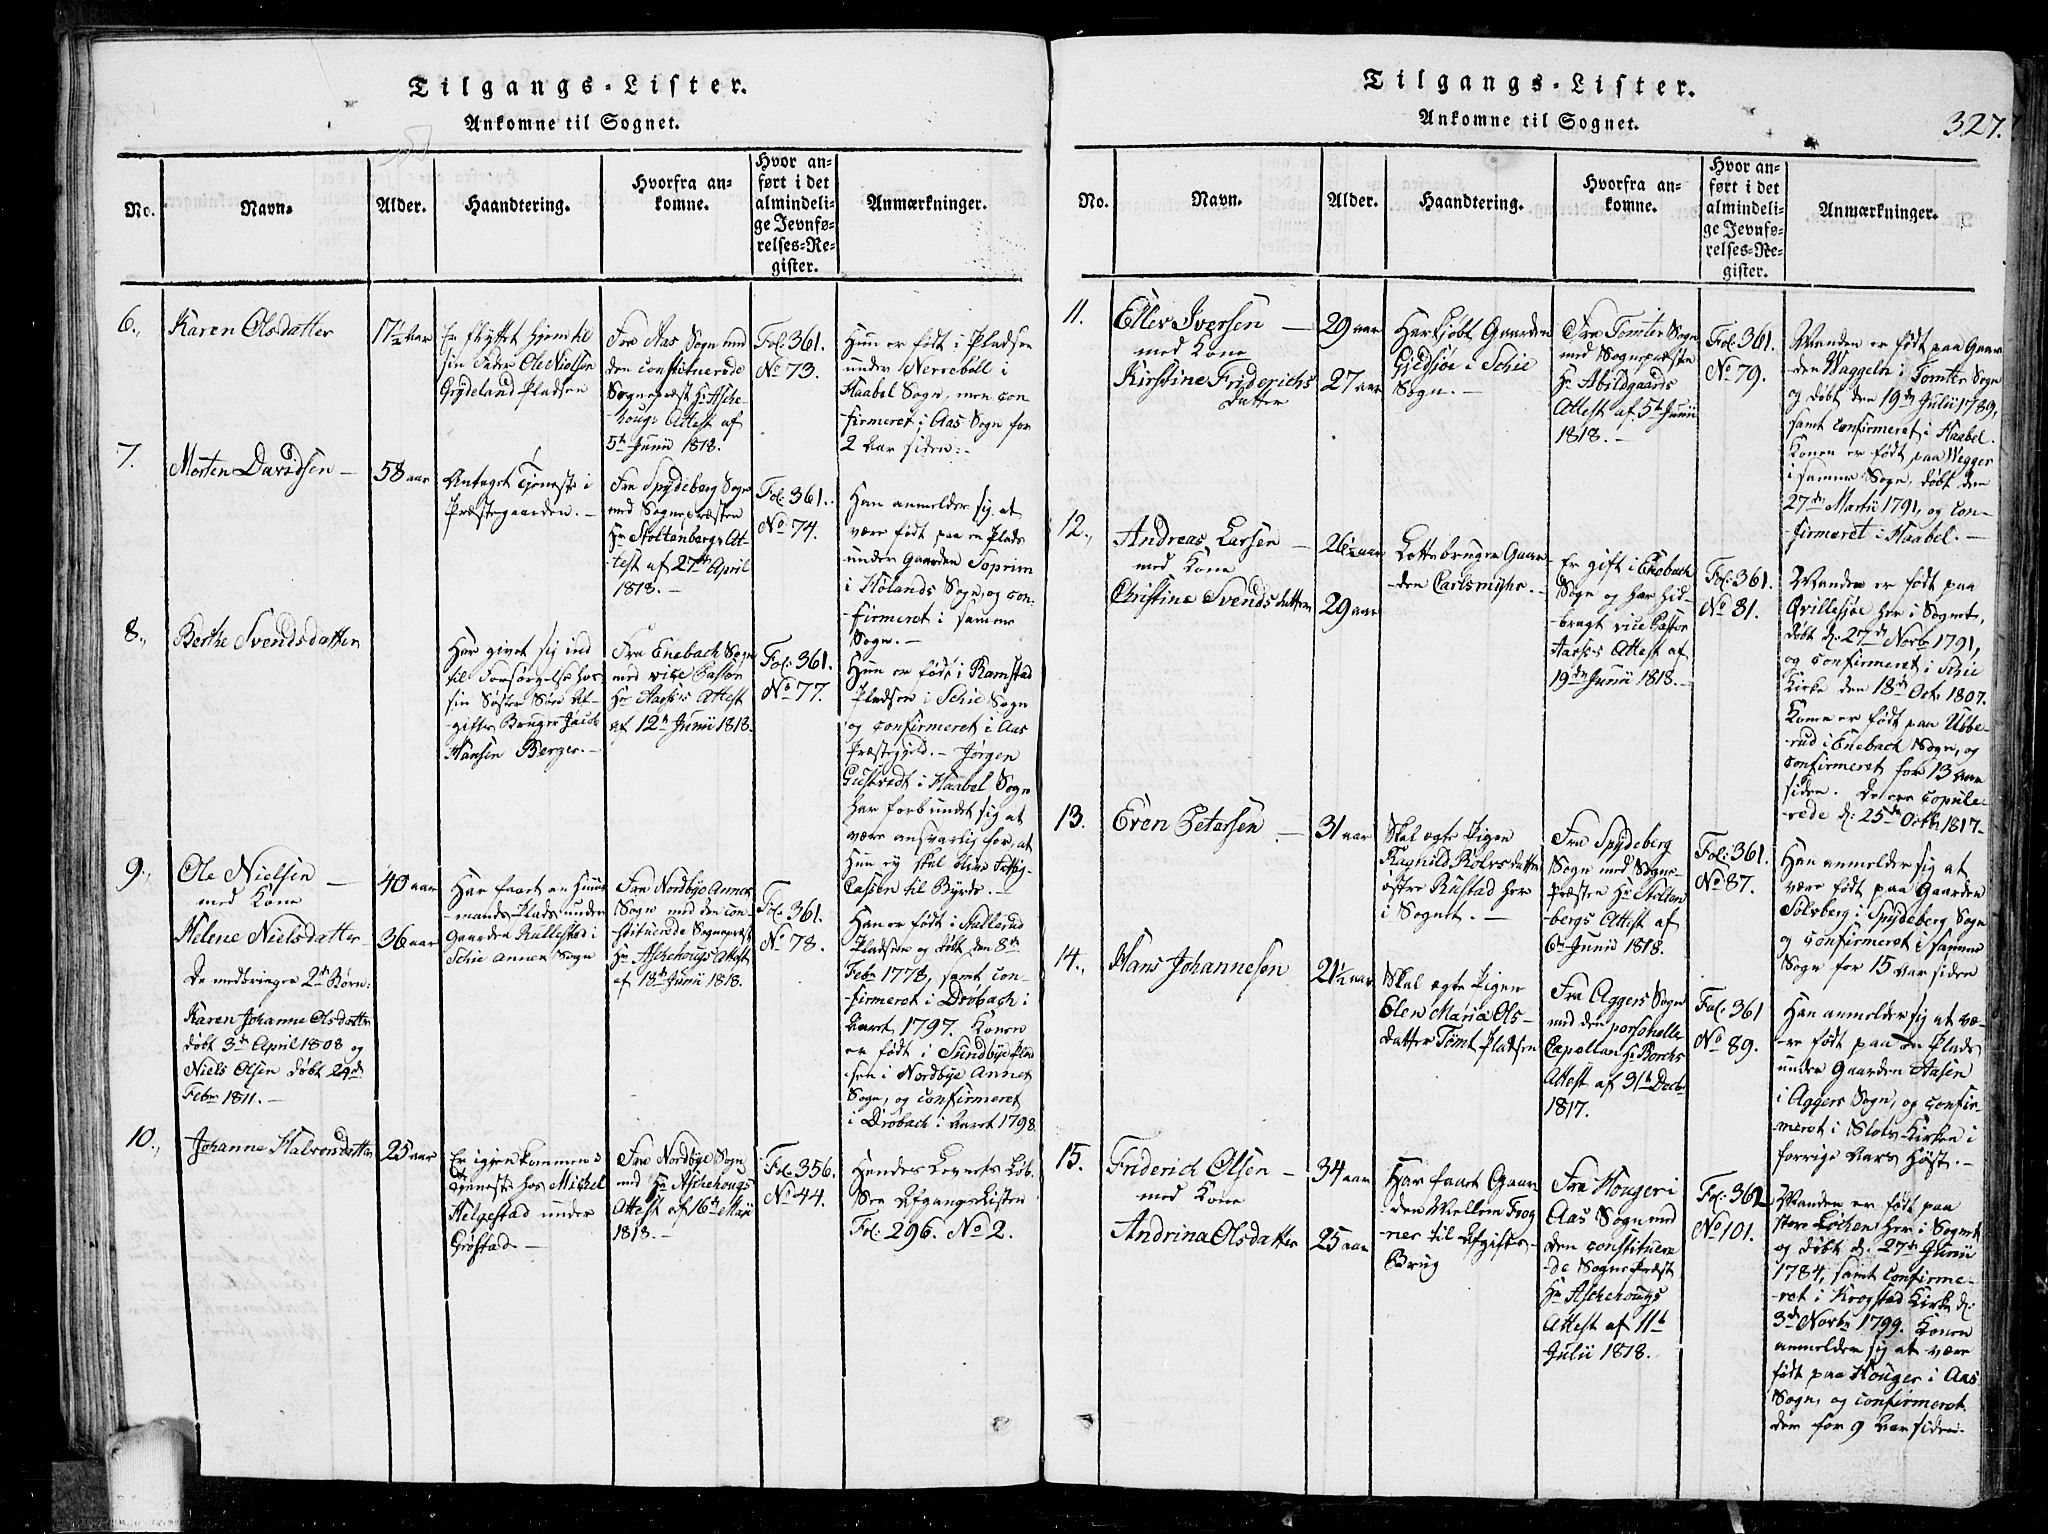 Tilgangs-Lister.
Ankomne til Sognet.
No.
Navn.
Alder.
Haandtering.
Hvorfra an-
komne.
Hvor an-
ført i det
almindeli-
ge Jevnfø-
relses-Re-
gister.
Anmærkninger.
6.,
Karen Olsdatter
17½ aar
Er flyttet hjem til
sin Fader Ole Nielsen
Grydeland Pladsen
Fra Aas Sogn med
den constituerede
Sognepræst Hr Asche-
hougs Attest af
5te Junii 1818.
Fol: 361.
No 73.
Hun er født i Pladsen
under Nerrebøll i
Haabel Sogn, men con-
firmeret i Aas Sogn for
2 Aar siden.-
7.
Morten Davidsen -
58 aar
Antaget Tjeneste i
Præstegaarden. -
Fra Spydeberg Sogn
med Sognepræsten
Hr Stoltenbergs At-
-test af 27de April
1818. -
Fol: 361.
No 74.
Han anmelder sig at
være født paa en Plads
under Gaarden Toprim
i Hølands Sogn, og con-
-firmeret i samme
Sogn. -
8.,
Berthe Svendsdatter
Har givet sig ind
til Forsørgelse hos
sin Søster Søn Af-
-gifts Bruger Jacob
Hansen Berger. -
Fra Enebach Sogn
med vice Pastor
Hr Aasses Attest
af 12te Junii 1818.
Fol: 361.
No 77.
Hun er født i Ramstad
Pladsen i Schie Sogn
og confirmeret i Aas
Præstegjeld. - Jørgen
i Haabel Sogn
har forbundet sig at
være ansvarlig for, at
Hun ej skal blive Fattig
Cassen til Byrde. -
9.,
Ole Nielsen -
med Kone
Helene Nielsdatter -
De medbringer 2de Børn:
Karen Johanne Olsdatter
døbt 3de April 1808 og
Niels Olsen døbt 24de
Febr 1811. -
40 aar
36 aar
Har faaet en Huus-
-mands Plads under
Gaarden Kullestad i
Schie annex Sogn
Fra Nordbye Annex
Sogn med den con-
stituerede Sognepræst
Hr Aschehougs Attest
af 18de Junii 1818.
Fol. 361.
No 78.
Han er født i Kallerud
Pladsen og døbt den 8de
Febr 1778, samt con-
-firmeret i Drøbach i
Aaret 1797. Konen
er født i Sundbye Plad
-sen i Nordbye Annex
Sogn, og confirmeret
i Drøbach i Aaret 1798.
10.,
Johanne Halvorsdatter
25 aar
Er igjen kommen i
Tjeneste hos Michel
Helgestad under
Grøstad. -
Fra Nordbye Sogn
med Hr Aschehougs
Attest af 16de Maji
1818. -
Fol. 356.
No 44.
Hendes Levnets Løb.
See Afgangs Listen
Fol: 296. No 2.
Tilgangs-Lister.
Ankomne til Sognet.
327.
No.
Navn.
Alder.
Haandtering.
Hvorfra an-
komne.
Hvor an-
ført i det
almindeli-
ge Jevnfø-
relses-Re-
gister.
Anmærkninger.
11.
Eller Iversen -
med Kone
Kirstine Friderichs
datter
29 aar
27 aar
Har kjøbt Gaarden
Gjedsjøe i Schie
Sogn. -
Fra Tomter Sogn
med Sognepræsten
Hr Abildgaards
Attest af 5te Junii
1818. -
Fol: 361.
No 79.
Manden er født paa Gaar
den Waggeln i Tomter Sogn
og døbt den 19de Julii 1789,
samt confirmeret i Haabel.
Konen er født paa Wegger
i samme Sogn, døbt den
27de Martii 1791, og con-
-firmeret i Haabel. -
12.,
Andreas Larsen -
med Kone
Christine Svendsdatter
26½ aar
29 aar
Lottebruger Gaar-
den Carlsmyhr. -
Er gift i Enebach
Sogn og har hid-
-bragt vice Pastor
Aasses Attest af
19de Junii 1818. -
Fol: 361.
No 81.
Manden er født paa
Qvillesjøe her i Sognet,
døbt d: 27de Novbr 1791,
og confirmeret i Schie
Kirke den 18de Octr 1807.
Konen er født paa Ubbe-
-rud i Enebach Sogn, og
confirmeret for 13 aar
siden. De ere copule-
-rede d: 25de Octbr 1817.
13.
Even Petersen -
31 aar
Skal ægte Pigen
Ragnild Rolvsdatter
østre Rustad her
i Sognet. -
Fra Spydeberg
Sogn med Sogne-
-præsten Hr Stolten
bergs Attest af
6te Junii 1818.
Fol: 361.
No 87.
Han anmelder sig at
være født paa Gaarden
Solberg i Spydeberg Sogn
og confirmeret i samme
Sogn for 15 aar siden
14.,
Hans Johannesen
21½ aar
Skal ægte Pigen
Elen Maria Ols-
datter Tomt Pladsen
Fra Aggers Sogn
med den personelle
Capellan Hr Borchs
Attest af 31te Decbr
1817.
Fol: 361
No 89.
Han anmelder sig at væ-
-re født paa en Plads
under Gaarden Aasen
i Aggers Sogn, og confir-
meret i Slots Kirken i
forrige Aars Høst. -
15.
Friderich Olsen -
med Kone
Andrina Olsdatter
34 aar
25 aar
Har faaet Gaar
den Mellem Frog
ner til Afgifts-
Brug
Fra Houger i
Aas Sogn med
den constituere
-de Sognepræst
Hr Aschehougs
Attest af 11te
Julii 1818.
Fol: 362
No 101.
Manden er født paa
store Løchen her i Sognet
og døbt d. 27de Junii
1784, samt confirme-
-ret i Krogstad Kirke d:
3de Novbr 1799. Konen
anmelder sig at være
født paa Houger i Aas
Sogn, og confirmeret
der for 9 Aar siden.